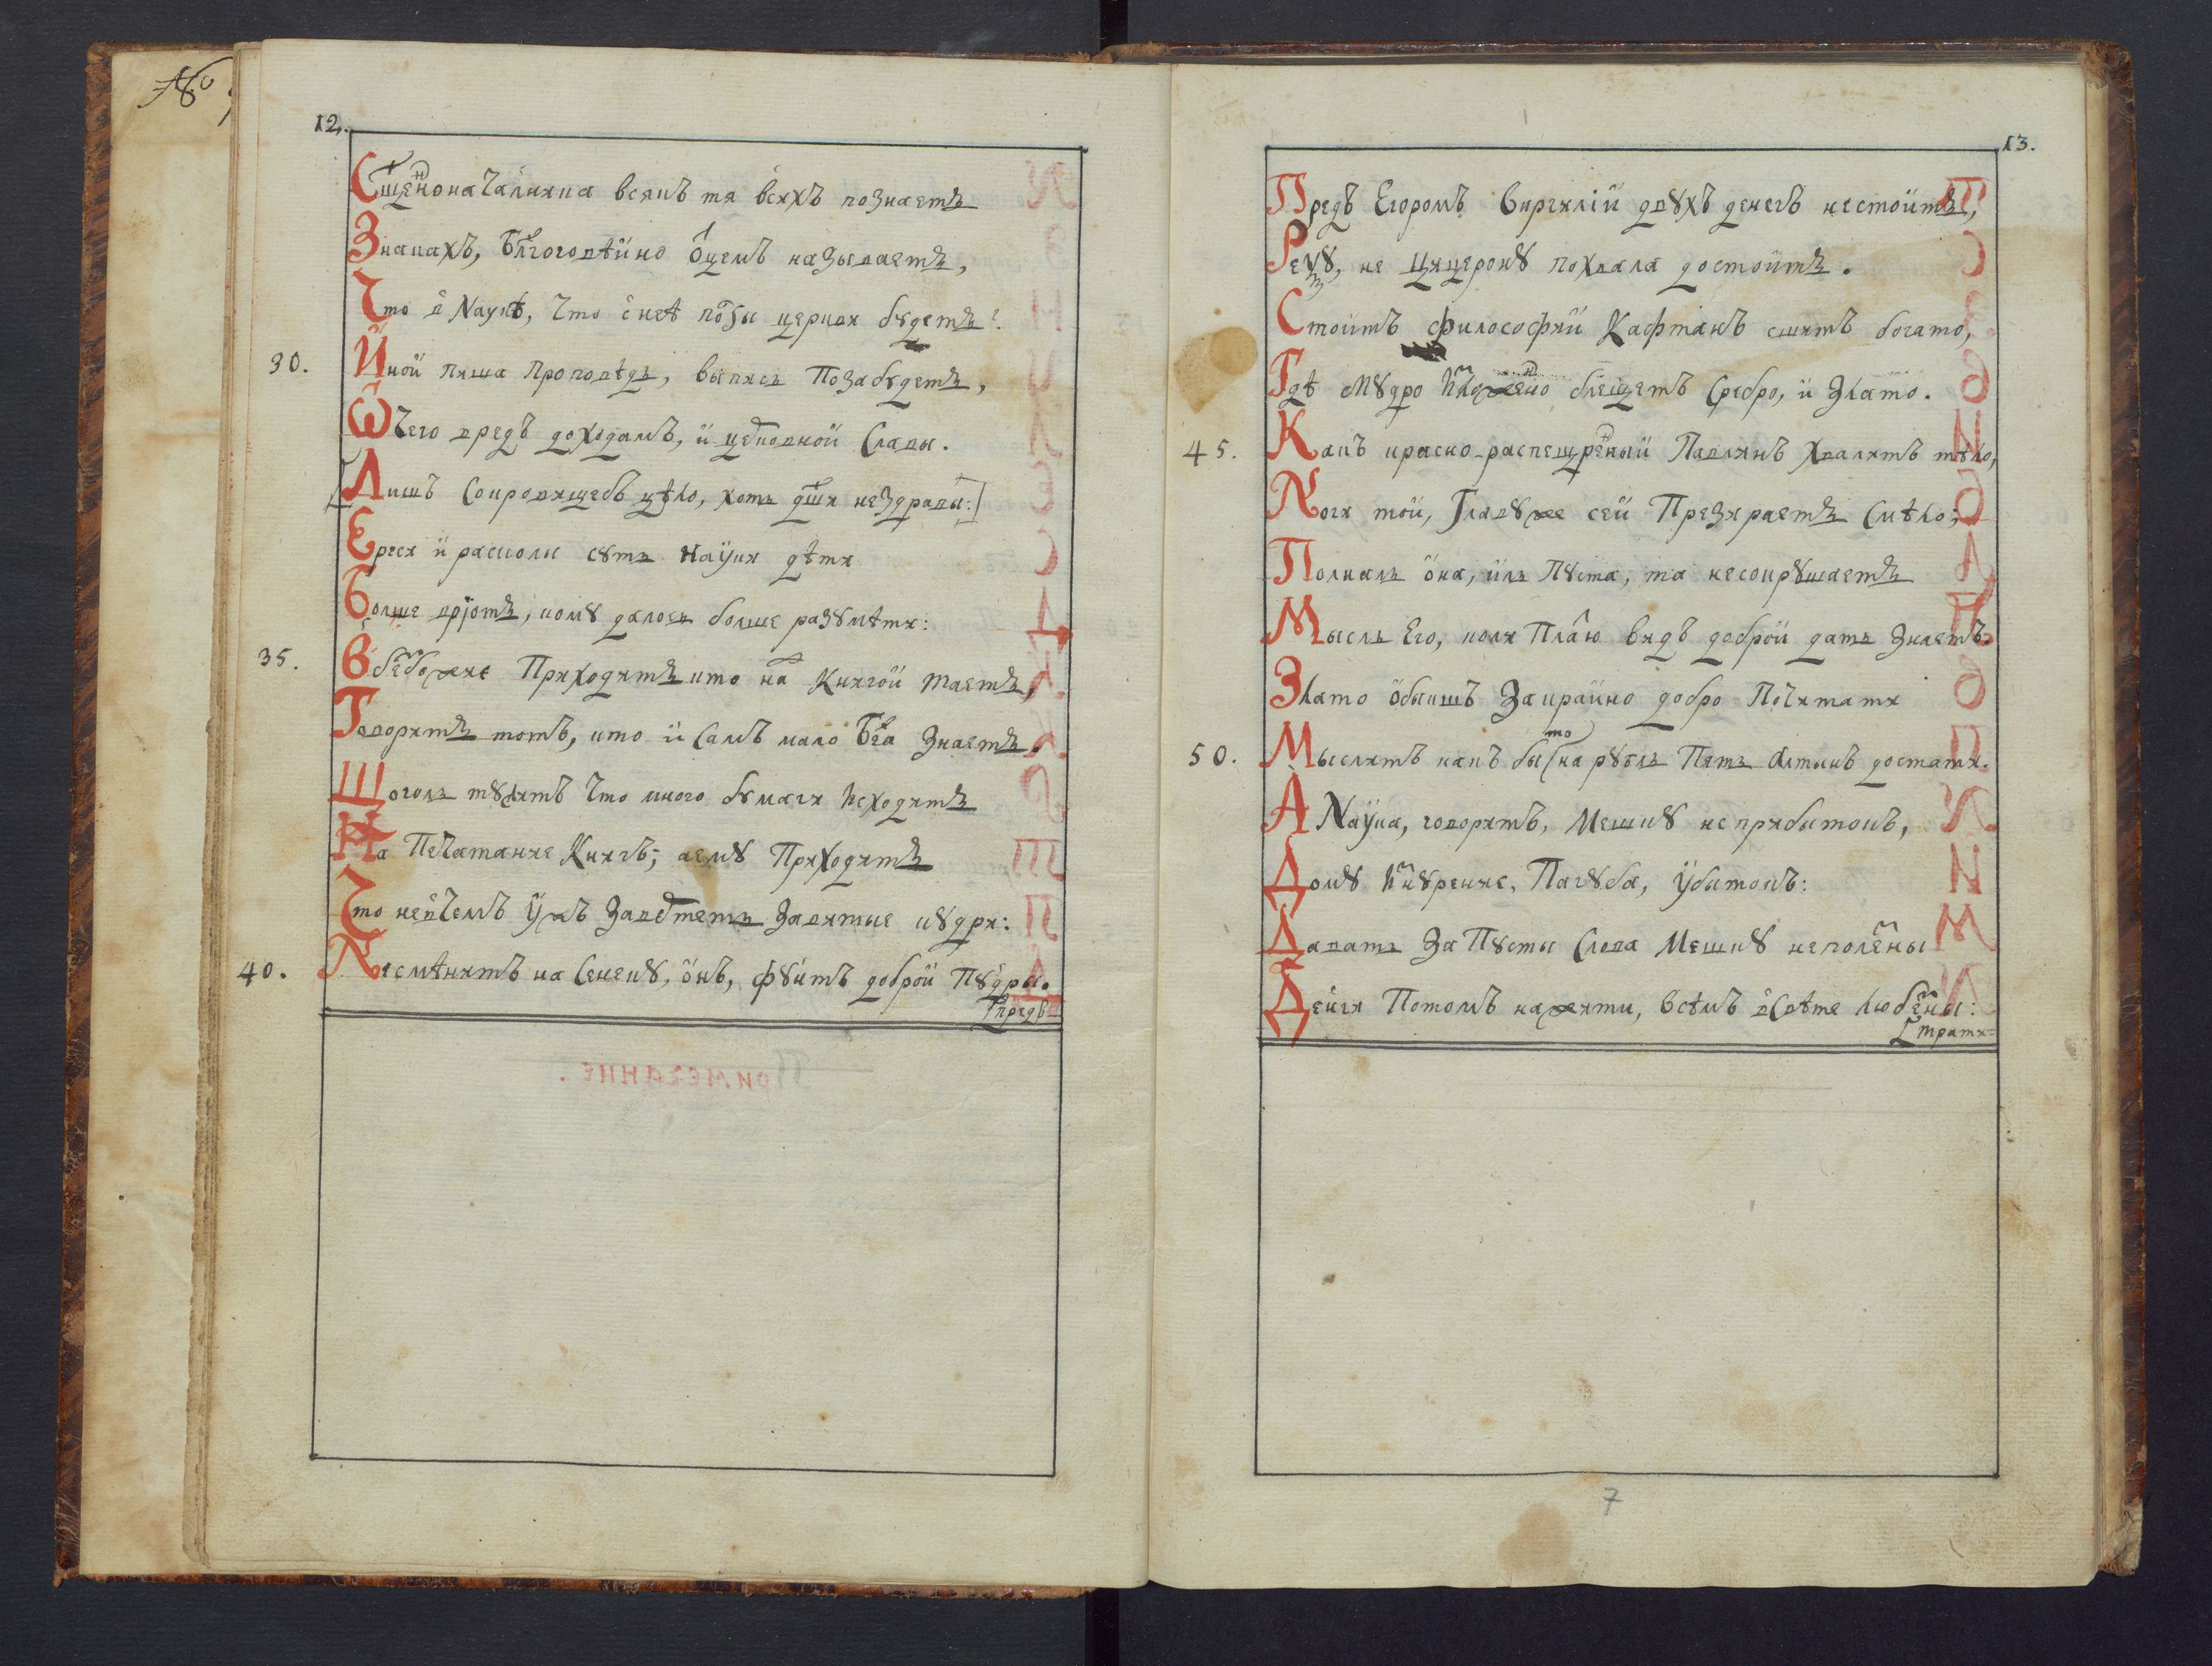 №
12.
Сщ҃еноначалника всякъ тя всѣхъ познаетъ
Знакахъ, Бл҃гоговѣйно о҃цемъ называетъ,
Что в Наукѣ, что с неѣ по҃зы церкви бꙋдетъ?
30. Иной пиша проповѣдь, выпись позабꙋдетъ,
Ѿ чего вредъ доходамъ, и церковной Славы.
[Лишъ Сокровищебъ цѣло, хоть дш҃и нездравы:]
Ереси и расколы сꙋть наꙋки дѣти
Болше врютъ, комꙋ далось болше разꙋмѣти:
35. В безбожие Приходитъ кто на Книгой таетъ,
Говоритъ тотъ, кто и Самъ мало Бг҃а Знаетъ.
Щоголь тꙋжитъ Что много бꙋмаги Исходитъ
На Печатание Книгъ; аемꙋ Приходитъ
Что невчемъ ꙋжъ Завертеть Завитые кꙋдри:
40. Несмѣнитъ на Сенекꙋ, онъ, фꙋнтъ доброй Пꙋдры.
[предъ
13.
Предъ Егоромъ Виргилий двꙋхъ денегъ нестоитъ,
Рексꙋ, не Цицеронꙋ похвала достоитъ.
Стоитъ философий Кафтанъ сшитъ богато,
Гдѣ Мꙋдро Иложено блещетъ Сребро, и Злато.
45. Какъ красно-распещреный Павлинъ Хвалятъ тѣло,
Ноги той, Главꙋже сей Презираетъ Смѣло;
Полналь она, иль Пꙋста, та несокрꙋшаетъ
Мысль Его, коли Платью видъ доброй дать Знаетъ.
Злато обыкшъ Закрайно добро Почитати
50. Мыслятъ какъ быто на рꙋбль Пять Алтынъ достати.
А Наꙋка, говорятъ, Мешкꙋ неприбытокъ,
Домꙋ Изнꙋрение, Пагꙋба, Ꙋбытокъ:
Давать За Пꙋсты Слова Мешкꙋ неполезны
Денги Потомъ нажиты, всѣмъ в Свѣте Любезны:
[трати=
7